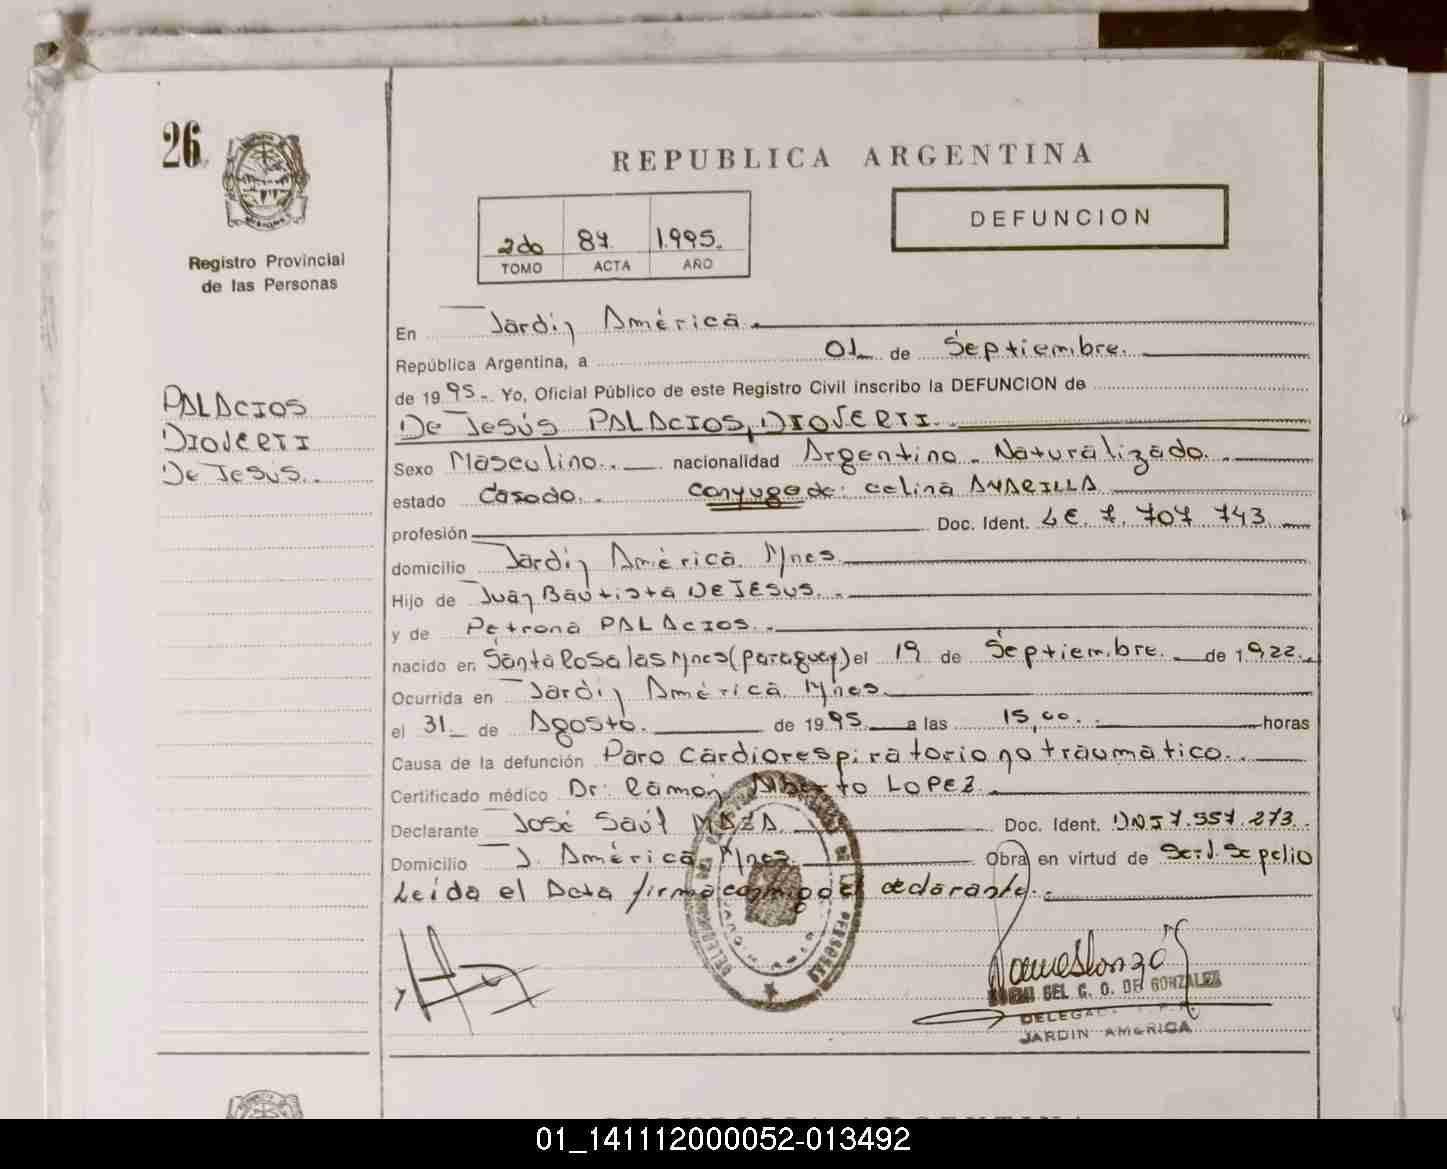 26
REPUBLICA ARGENTINA
DEFUNCION
2do 87. 1.995.
TOMO ACTA AÑO
Registro Provincial
de las Personas
PALACIOS
DIOSERTI
De Jesus..
En Jardín América.
República Argentina, a 01 de Septiembre.
de 19 95.- Yo, Oficial Público de este Registro Civil inscribo la DEFUNCION de
De Jesús PALACIOS, DIOSERTI.
Sexo Masculino.. nacionalidad Argentino - Naturalizado..
estado Casado. - Conyuge de: Celina
profesión Doc. Ident. LE 7. 707 743
domicilio Jardín América Mnes
Hijo de Juan Bautista DE JESUS. -
y de Petrona PALACIOS. -
nacido en Santa Rosa las Mnes (Paraguay) el 19 de Septiembre. de 1922..
Ocurrida en Jardín América Mnes.
el 31 de Agosto. de 19 95 a las 15,00. - horas
Causa de la defunción Paro Cardiorespiratorio no traumatico..
Certificado médico Dr: Ramón Alberto LOPEZ
Declarante José Saúl MAZA. Doc. Ident. DNI 7.557.273.
Domicilio J. América Mnes. Obra en virtud de Serv. Sepelio
Leída el Acta firma conmigo el declarante. -
DEL C. O. DE GONZALEZ
JARDIN AMERICA
01_141112000052-013492